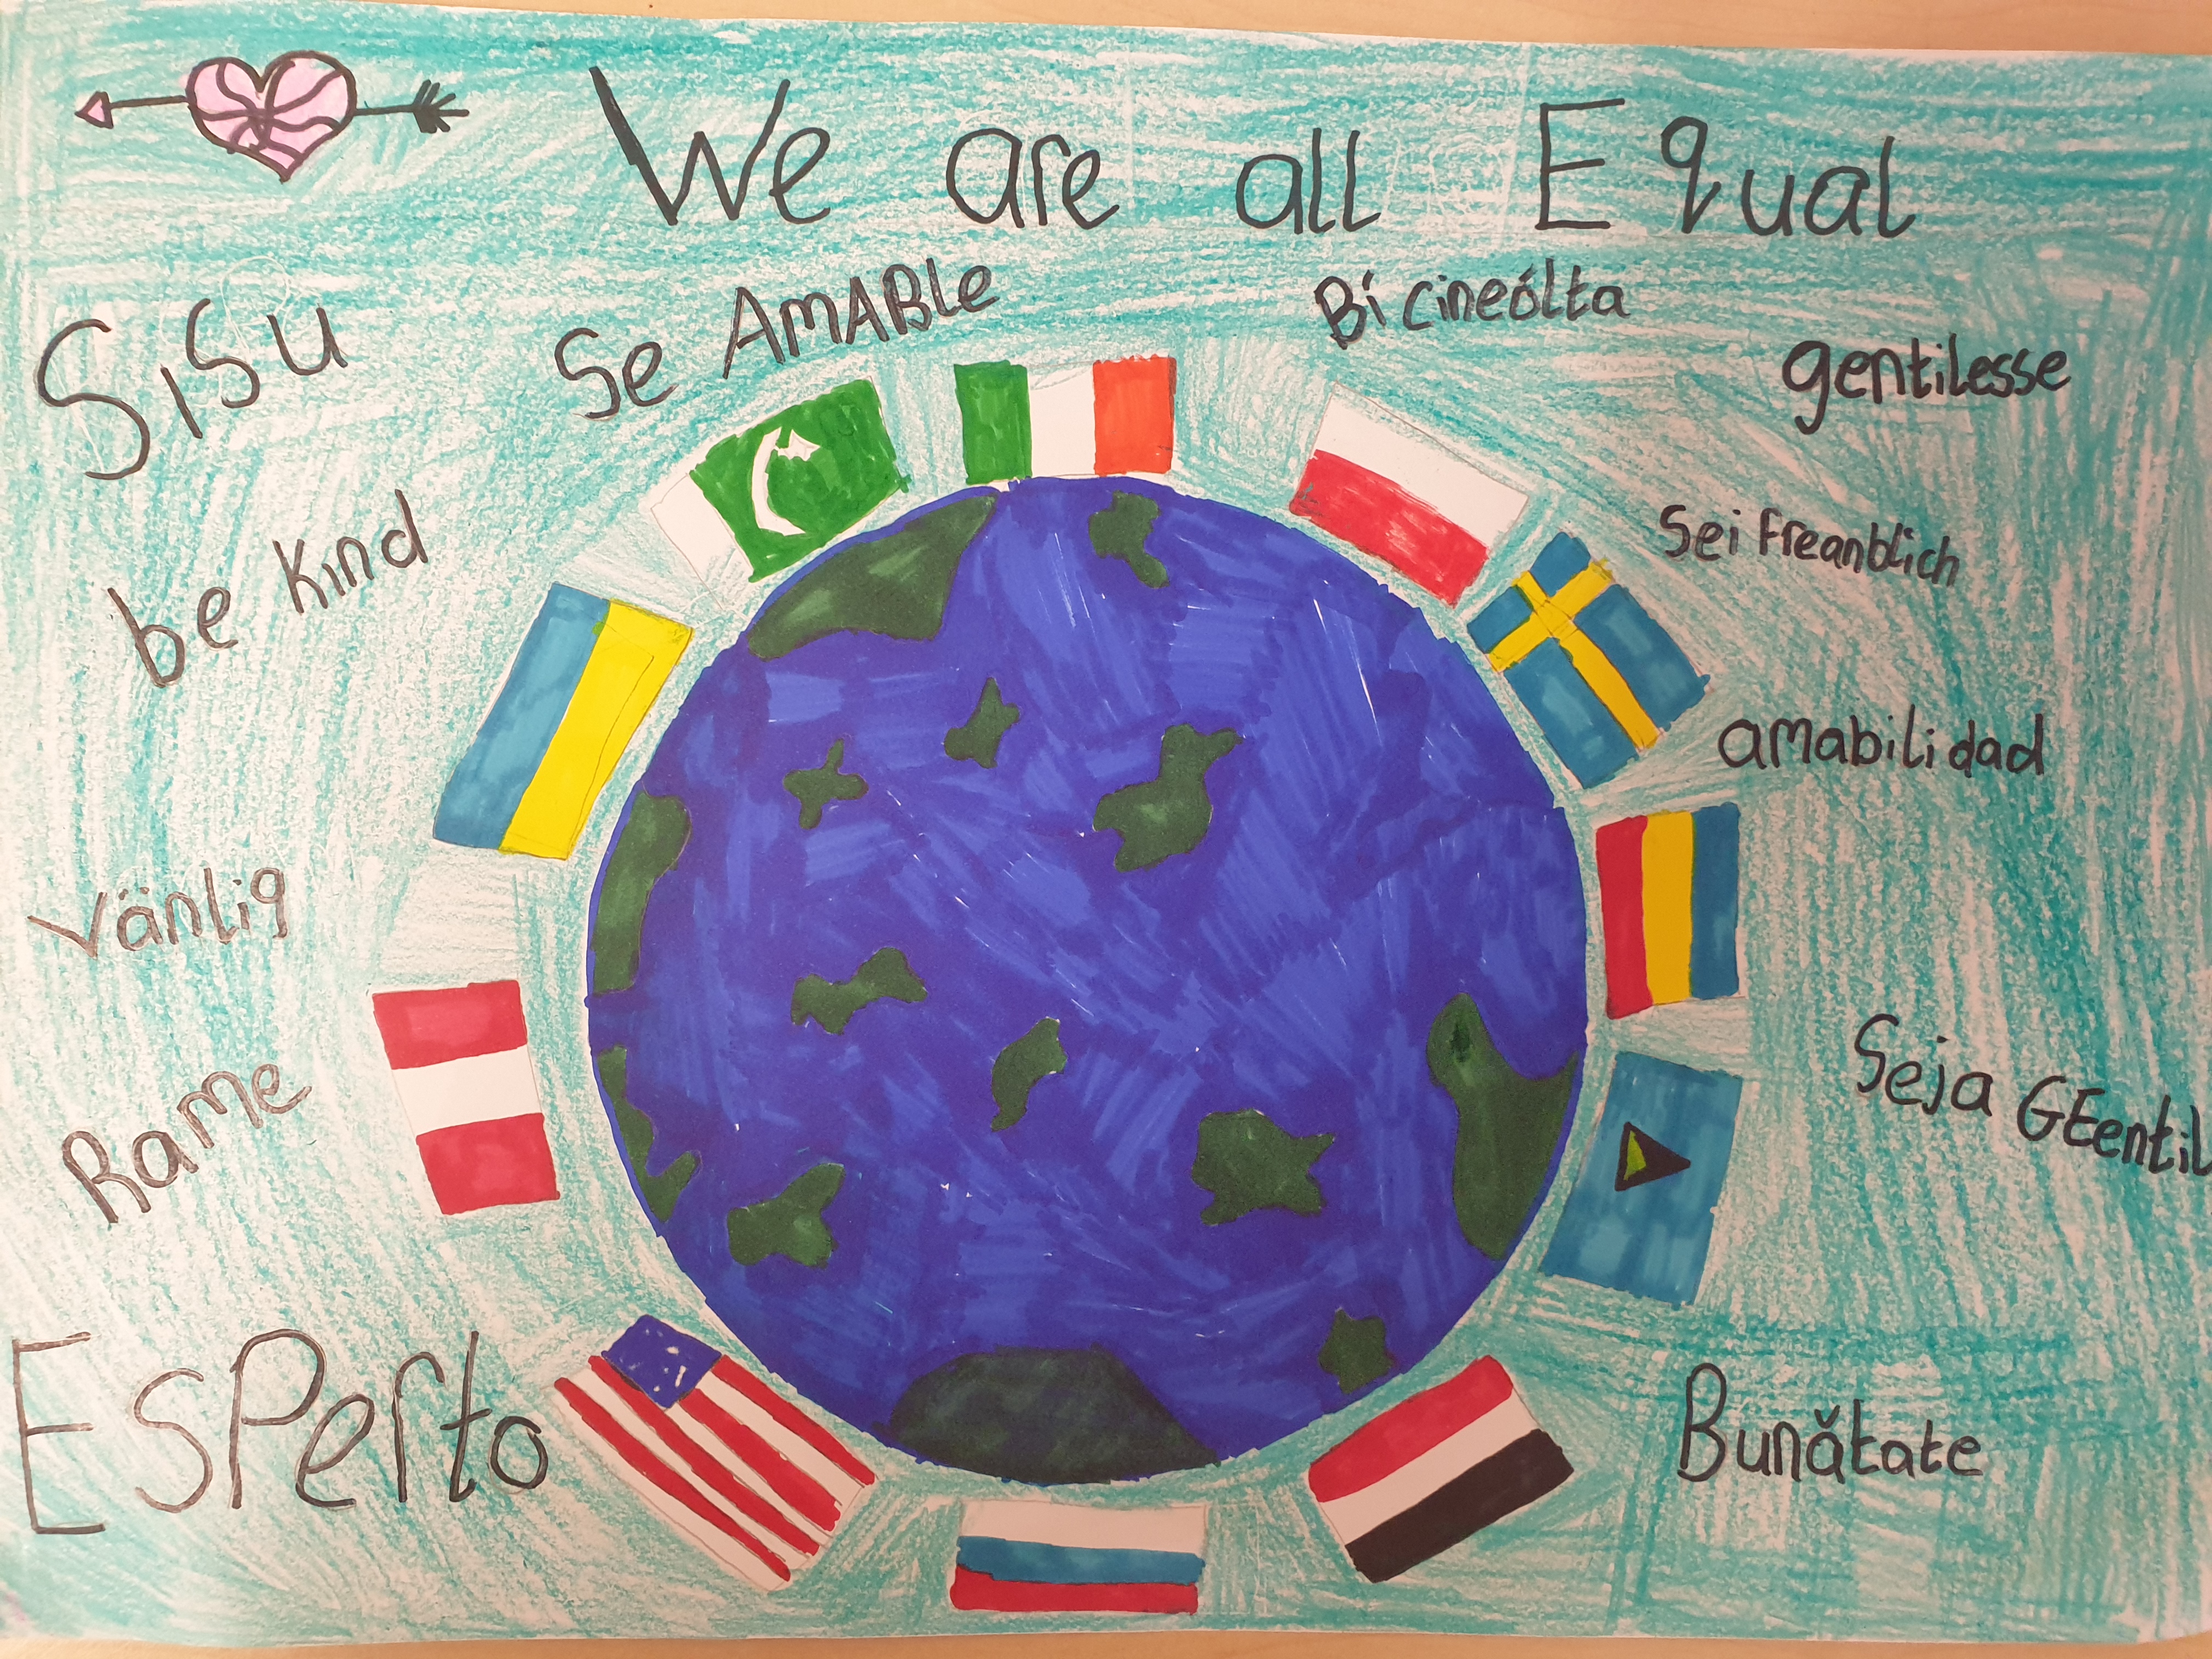 We are all Equal
SiSu
Se AMABle
Bí cineólta
gentilesse
be kind
Sei Freanblich
amabilidad
vänlig
Seja GEentil
Rame
ESPerto
Bunătate